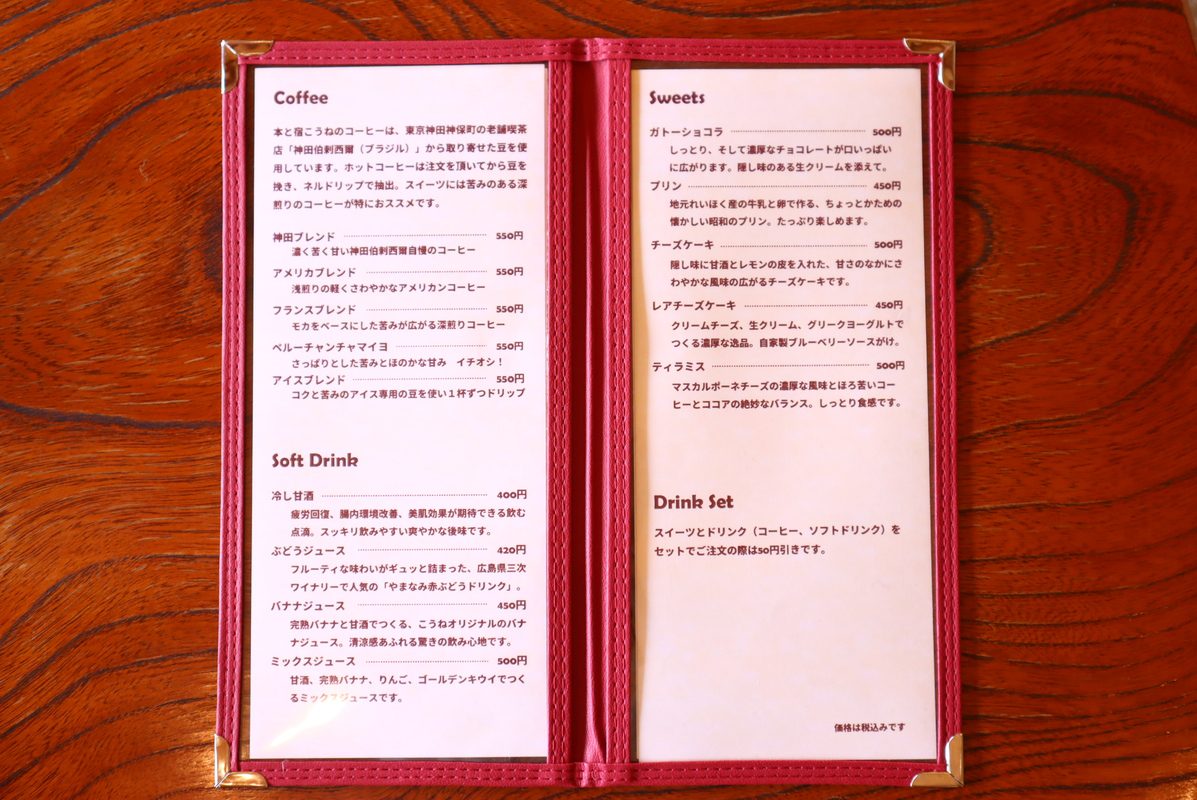 Coffee
本と宿こうねのコーヒーは、東京神田神保町の老舗喫茶
店「神田伯剌西爾（ブラジル）」から取り寄せた豆を使
用しています。ホットコーヒーは注文を頂いてから豆を
挽き、ネルドリップで抽出。スイーツには苦みのある深
煎りのコーヒーが特におススメです。
神田ブレンド 550円
濃く苦く甘い神田伯剌西爾自慢のコーヒー
アメリカブレンド 550円
浅煎りの軽くさわやかなアメリカンコーヒー
フランスブレンド 550円
モカをベースにした苦みが広がる深煎りコーヒー
ペルーチャンチャマイヨ 550円
さっぱりとした苦みとほのかな甘み　イチオシ！
アイスブレンド 550円
コクと苦みのアイス専用の豆を使い１杯ずつドリップ
Soft Drink
冷し甘酒 400円
疲労回復、腸内環境改善、美肌効果が期待できる飲む
点滴。スッキリ飲みやすい爽やかな後味です。
ぶどうジュース 420円
フルーティな味わいがギュッと詰まった、広島県三次
ワイナリーで人気の「やまなみ赤ぶどうドリンク」。
バナナジュース 450円
完熟バナナと甘酒でつくる、こうねオリジナルのバナ
ナジュース。清涼感あふれる驚きの飲み心地です。
ミックスジュース 500円
甘酒、完熟バナナ、りんご、ゴールデンキウイでつく
るミックスジュースです。
Sweets
ガトーショコラ 500円
しっとり、そして濃厚なチョコレートが口いっぱい
に広がります。隠し味のある生クリームを添えて。
プリン 450円
地元れいほく産の牛乳と卵で作る、ちょっとかための
懐かしい昭和のプリン。たっぷり楽しめます。
チーズケーキ 500円
隠し味に甘酒とレモンの皮を入れた、甘さのなかにさ
わやかな風味の広がるチーズケーキです。
レアチーズケーキ 450円
クリームチーズ、生クリーム、グリークヨーグルトで
つくる濃厚な逸品。自家製ブルーベリーソースがけ。
ティラミス 500円
マスカルポーネチーズの濃厚な風味とほろ苦いコー
ヒーとココアの絶妙なバランス。しっとり食感です。
Drink Set
スイーツとドリンク（コーヒー、ソフトドリンク）を
セットでご注文の際は50円引きです。
価格は税込みです